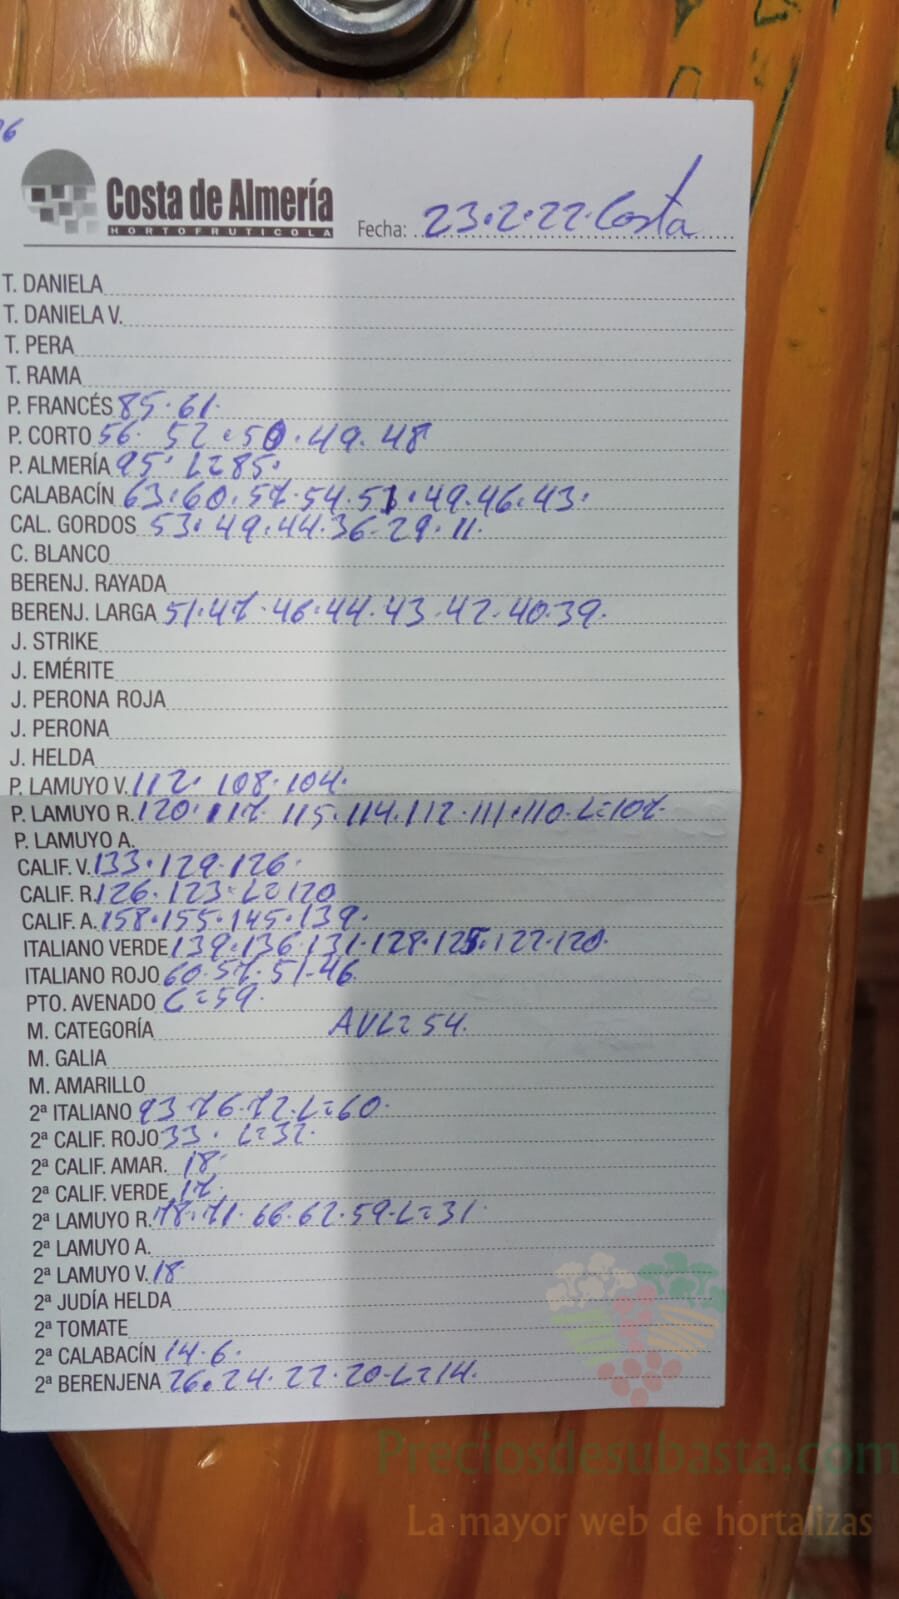 Costa de Almería
HORTOFRUTICOLA
Fecha: 23.2.22. Costa
T. DANIELA
T. DANIELA V.
T. PERA
T. RAMA
P. FRANCÉS 85.61.
P. CORTO 56. 52.50.49.48
P. ALMERÍA 95. L=85.
CALABACÍN 63.60.57.54.51.49.46.43.
CAL. GORDOS 53.49.44.36.29.11.
C. BLANCO
BERENJ. RAYADA
BERENJ. LARGA 51.47.46.44.43.42.40.39.
J. STRIKE
J. EMÉRITE
J. PERONA ROJA
J. PERONA
J. HELDA
P. LAMUYO V. 112. 108.104.
P. LAMUYO R. 120.117. 115.114.112.111.110.L=107.
P. LAMUYO A.
CALIF. V. 133.129.126.
CALIF. R. 126.123.L=120
CALIF. A. 158.155.145.139.
ITALIANO VERDE 139.136.131.128.125.122.120.
ITALIANO ROJO 60.57.51.46
PTO. AVENADO L=59.
M. CATEGORÍA AVL=54.
M. GALIA
M. AMARILLO
2ª ITALIANO 93.76.72.L=60.
2ª CALIF. ROJO 33. L=32.
2ª CALIF. AMAR. 18.
2ª CALIF. VERDE 17.
2ª LAMUYO R. 78.71. 66.62.59.L=31.
2ª LAMUYO A.
2ª LAMUYO V. 18
2ª JUDÍA HELDA
2ª TOMATE
2ª CALABACÍN 14.6.
2ª BERENJENA 26.24.22.20.L=14.
Preciosdesubasta.com
La mayor web de hortalizas